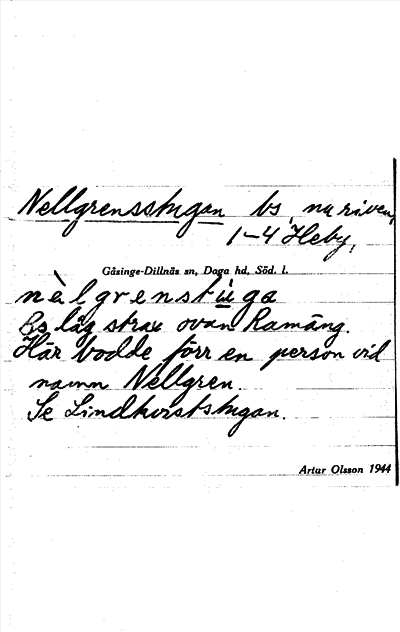 Nellgrensstugan bs, nu riven,
1–4 Heby,
Gåsinge-Dillnäs sn, Daga hd, Söd. l.
nèlgrenstu̇ga
Bs låg strax ovan Ramäng.
Här bodde förr en person vid
namn Nellgren.
Se Lindkvistsstugan.
Artur Olsson 1944